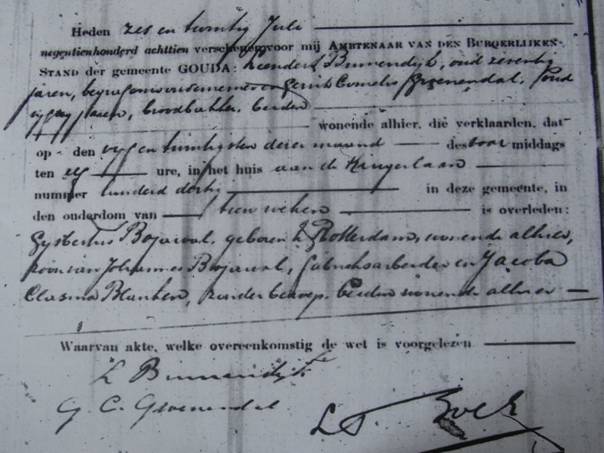 Heden zes en twintig Juli
negentienhonderd achttien verschenen voor mij AMBTENAAR VAN DEN BURGERLIJKEN-
STAND der gemeente GOUDA: Leendert Binnendijk, oud zeventig
jaren, begrafenisondernemer en Gerrit Cornelis Groenendal, oud
jaren, beiden
wonende alhier, die verklaarden, dat
op den vijf en twintigsten dezer maand des voor middags
ten elf ure, in het huis aan de Kingerlaan
nummer honderd dertig in deze gemeente, in
den ouderdom van tien weken is overleden:
Gijsbertus Bojarval, geboren te Rotterdam, wonende alhier,
zoon van Johannes Bojarval, fabrieksarbeider en Jacoba
Clasina Blanken, zonder beroep, beiden wonende alhier
Waarvan akte, welke overeenkomstig de wet is voorgelezen
L Binnendijk
G. C. Groenendal